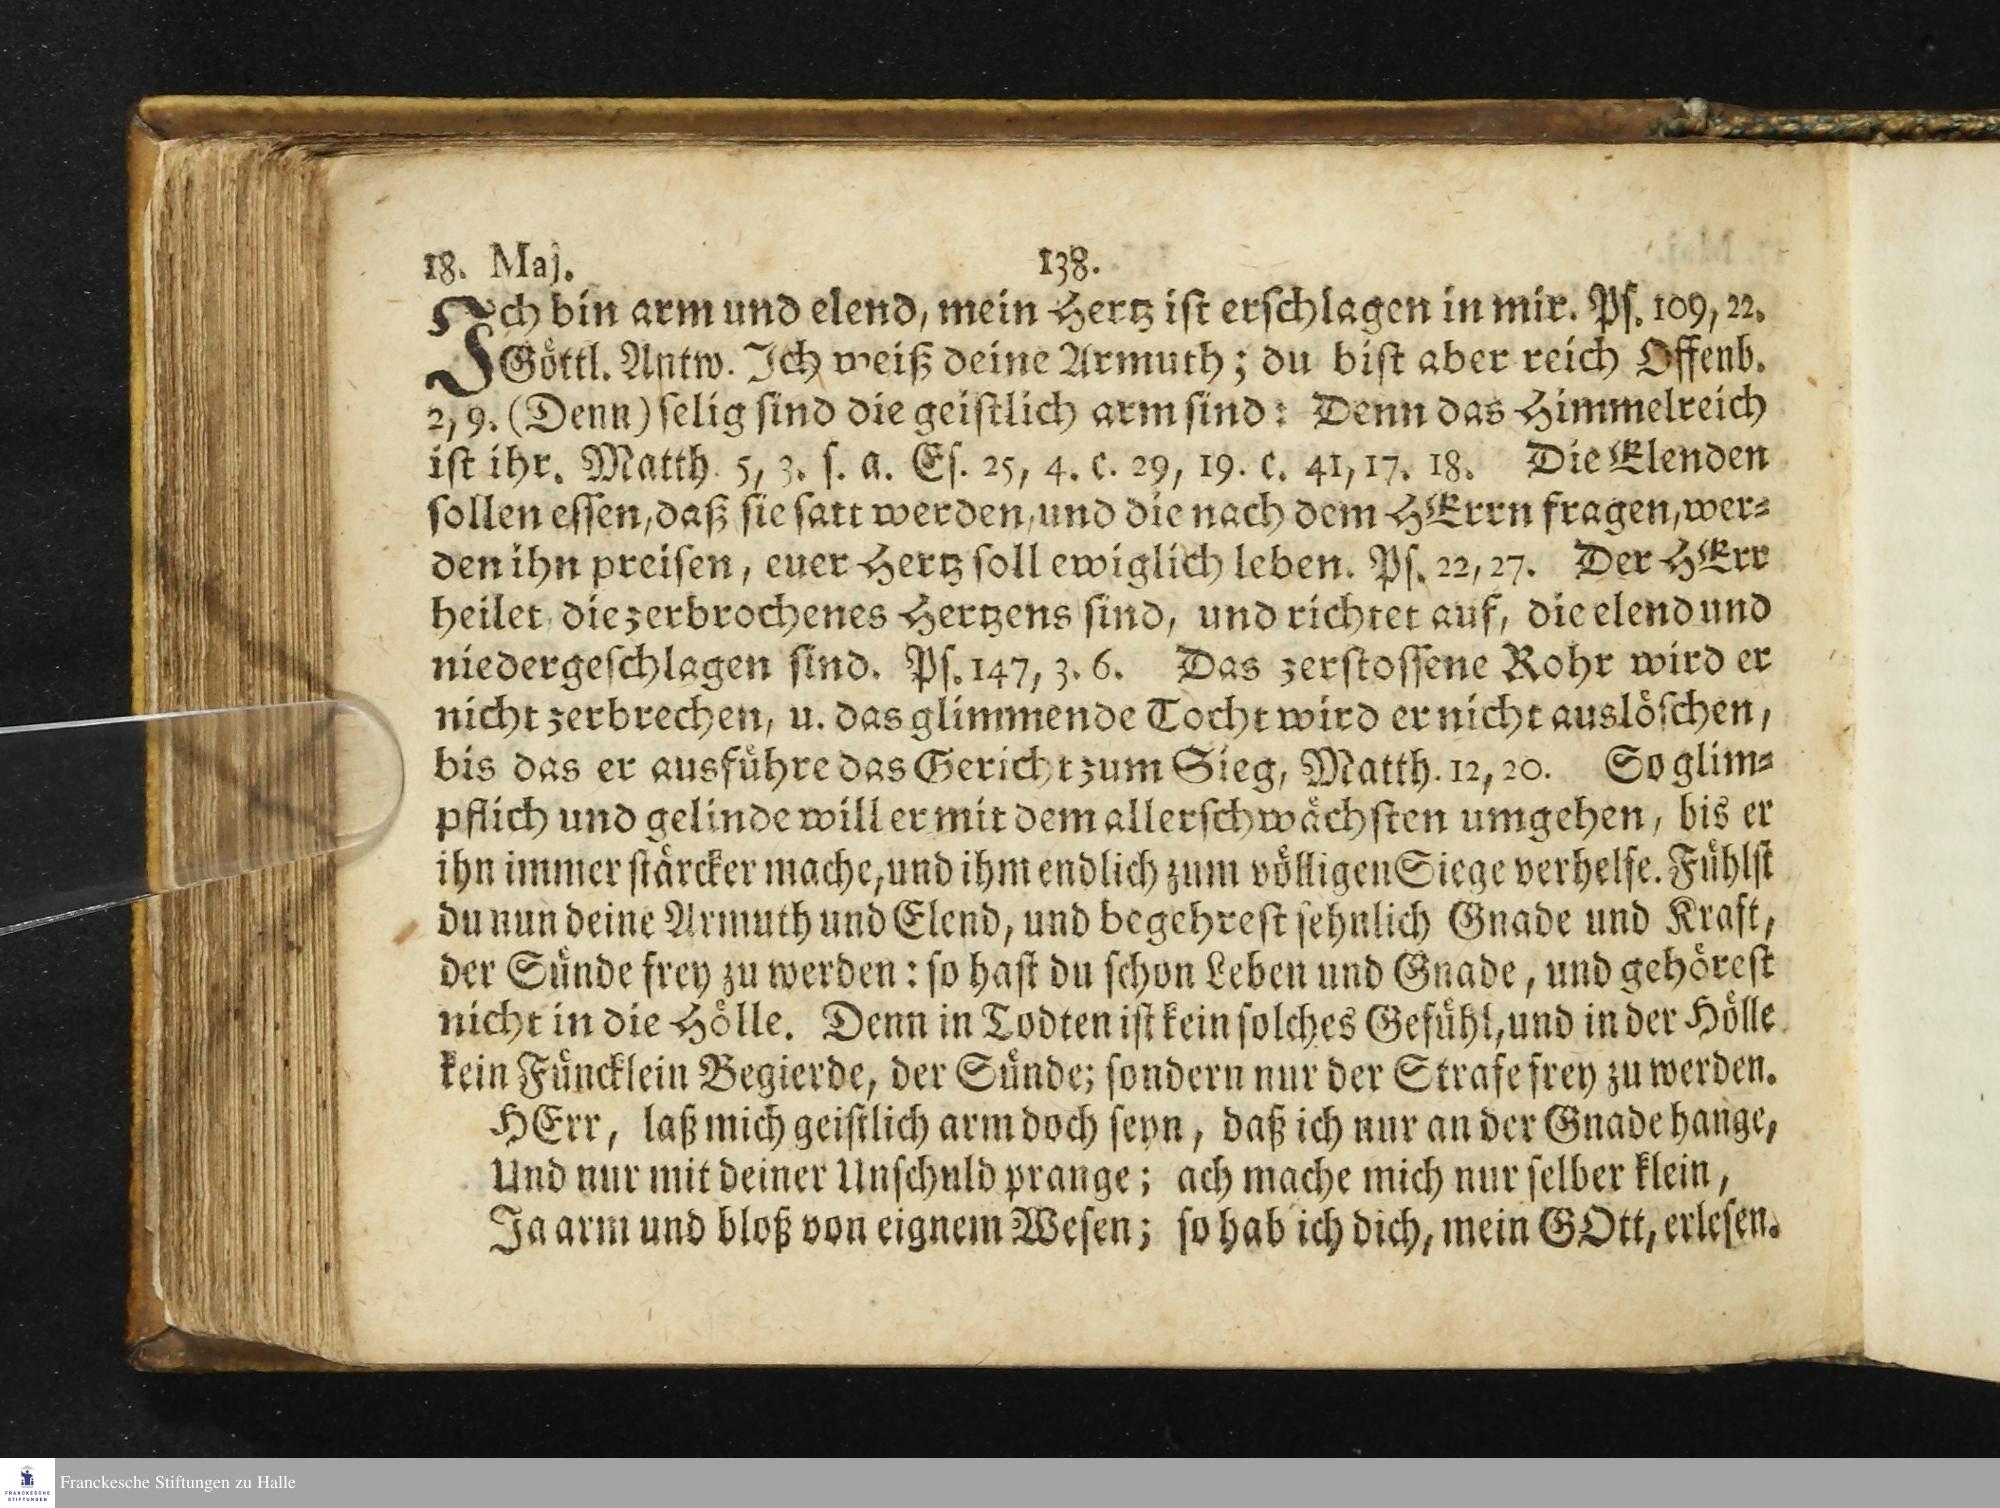 18. Maj. 138.
Ich bin arm und elend, mein Hertz ist erschlagen in mir. Ps. 109, 22.
Göttl. Antw. Ich weiß deine Armuth; du bist aber reich Offenb.
2, 9. (Denn) selig sind die geistlich arm sind: Denn das Himmelreich
ist ihr. Matth. 5, 3. s. a. Es. 25, 4. c. 29, 19. c. 41, 17. 18. Die Elenden
sollen essen, daß sie satt werden, und die nach dem HErrn fragen, wer⸗
den ihn preisen, euer Hertz soll ewiglich leben. Ps. 22, 27. Der HErr
heilet, die zerbrochenes Hertzens sind, und richtet auf, die elend und
niedergeschlagen sind. Ps. 147, 3. 6. Das zerstossene Rohr wird er
nicht zerbrechen, u. das glimmende Tocht wird er nicht auslöschen,
bis das er ausführe das Gericht zum Sieg, Matth. 12, 20. So glim⸗
pflich und gelinde will er mit dem allerschwächsten umgehen, bis er
ihn immer stärcker mache, und ihm endlich zum völligen Siege verhelfe. Fühlst
du nun deine Armuth und Elend, und begehrest sehnlich Gnade und Kraft,
der Sünde frey zu werden: so hast du schon Leben und Gnade, und gehörest
nicht in die Hölle. Denn in Todten ist kein solches Gefühl, und in der Hölle
kein Füncklein Begierde, der Sünde; sondern nur der Strafe frey zu werden.
HErr, laß mich geistlich arm doch seyn, daß ich nur an der Gnade hange,
Und nur mit deiner Unschuld prange; ach mache mich nur selber klein,
Ja arm und bloß von eignem Wesen; so hab ich dich, mein GOtt, erlesen.
FRANCKESCHE
STIFTUNGEN
Franckesche Stiftungen zu Halle